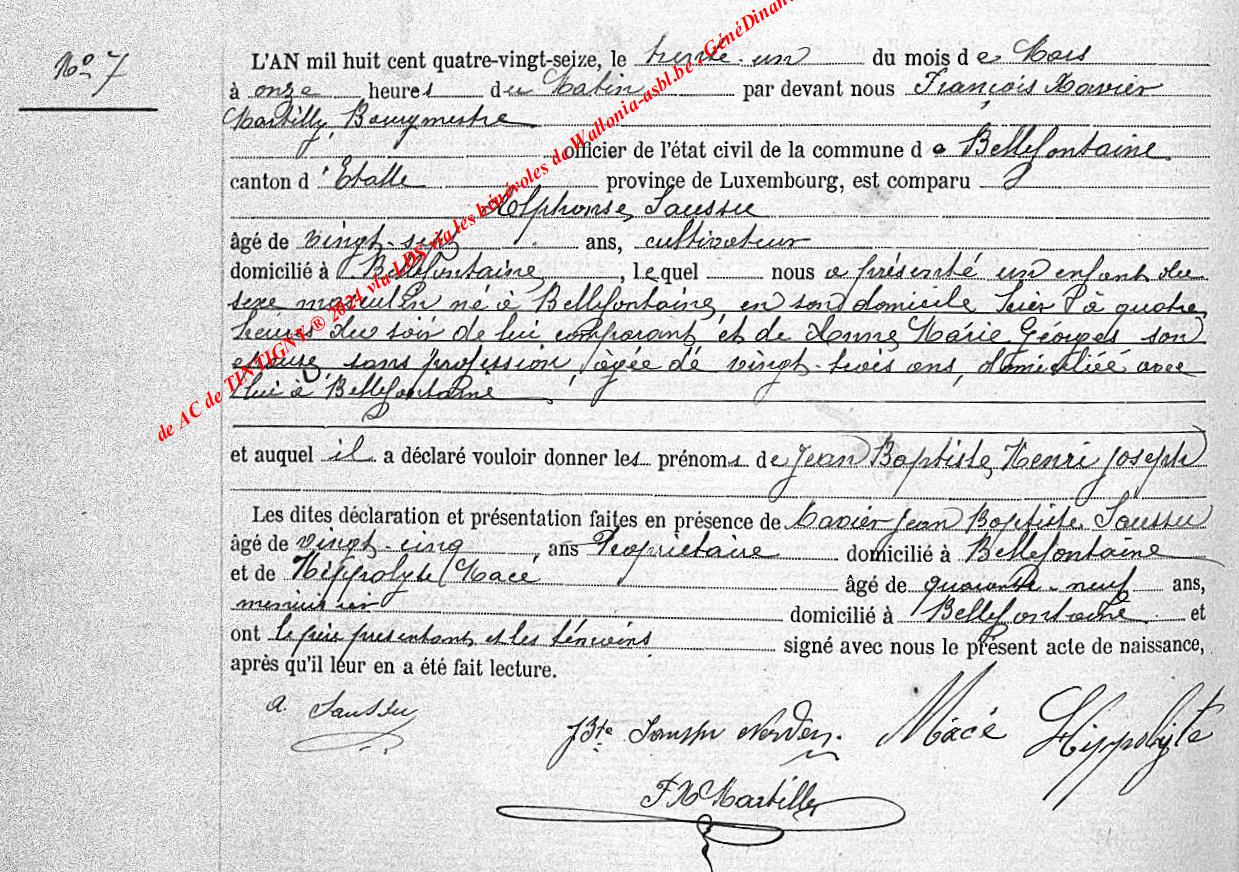 No 7
L'AN mil huit cent quatre-vingt-seize, le trente-un du mois de Mars
à onze heures du Matin par devant nous François Xavier
Martilly, Bourgmestre
officier de l'état civil de la commune de Bellefontaine
canton d'Etalle province de Luxembourg, est comparu
Alphonse Saussu
âgé de vingt-six ans, cultivateur
domicilié à Bellefontaine, lequel nous a présenté un enfant du
sexe masculin né à Bellefontaine, en son domicile hier à quatre
heures du soir de lui comparant et de Anne Marie Géorges son
épouse, sans profession, âgée de vingt-trois ans, domiciliée avec
lui à Bellefontaine
et auquel il a déclaré vouloir donner les prénoms de Jean Baptiste Henri Joseph
Les dites déclaration et présentation faites en présence de Xavier Jean Baptiste Saussu
âgé de vingt-cinq, ans Propriétaire domicilié à Bellefontaine
et de Hippolyte Macé âgé de quarante-neuf ans,
menuisier domicilié à Bellefontaine et
ont le père présentant et les témoins signé avec nous le présent acte de naissance,
après qu'il leur en a été fait lecture.
a. Saussu
JBte Saussu Macé Hippolyte
FX Martilly
de AC de TINTIGNY ® 2021 via LDS via les bénévoles de Wallonia-asbl.be - GénéDinant